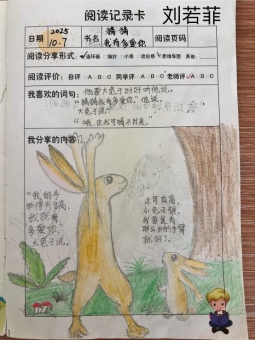 阅读记录卡 刘若菲
日期 2025 10.7 书名 猜猜我有多爱你 阅读页码
阅读分享形式 ✓连环画 摘抄 小报 读后感 思维导图 其他
阅读评价: 自评 A B C 同学评 A B C 老师评 A B C
我喜欢的词句: 他要大兔子好好听他说。
“猜猜我有多爱你。”他说。
大兔子说:
“哦,这我可猜不出来。”
我分享的内容:
“我的手
举得有多高,
我就有
多爱你。”
大兔子说。
这可真高,
小兔子想,
我要是有
那么长的手臂
就好了。